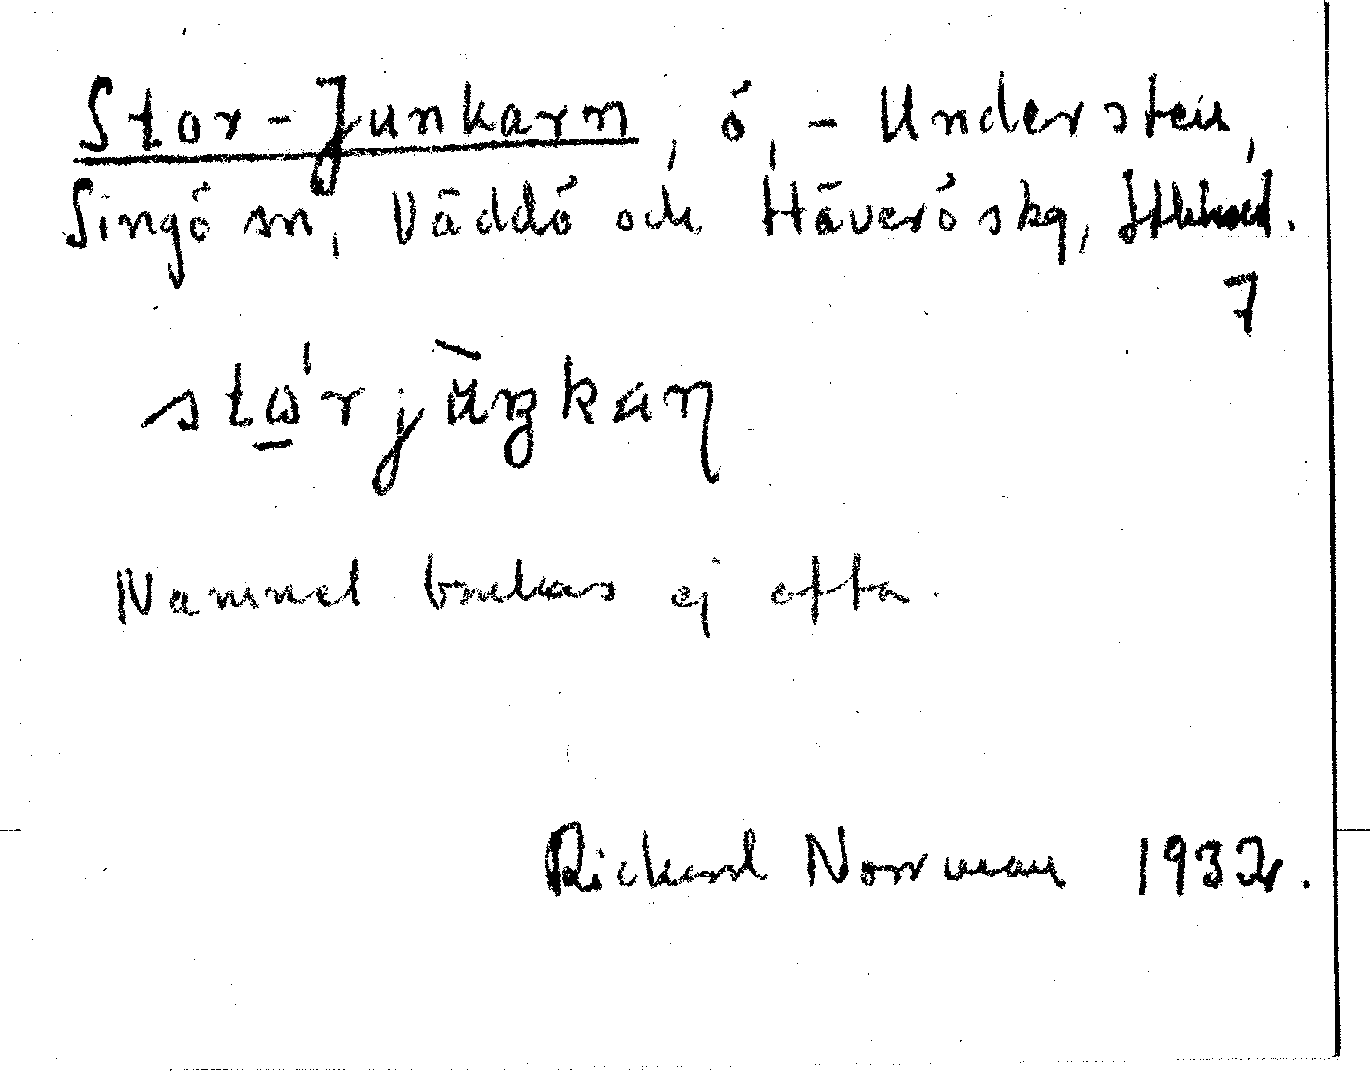 Stor-Junkarn, ö, - Understen,
Singö sn, Väddö och Häverö skg, Sthlms l.
7
stω̲'rjùŋkaɳ
Namnet brukas ej ofta.
Rickard Norrman 1932.